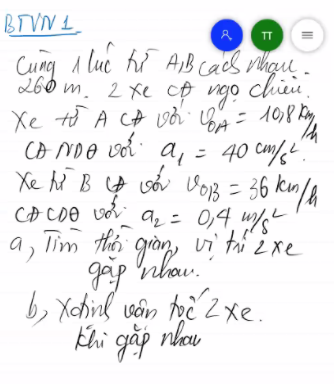 BTVN 1
Cùng 1 lúc từ A,B cách nhau
260 m. 2 xe CĐ ngc chiều.
Xe từ A CĐ với v0A = 10,8 km/h
CĐ NDĐ với a1 = 40 cm/s²
Xe từ B CĐ với v0B = 36 km/h
CĐ CDĐ với a2 = 0,4 m/s²
a, Tìm thời gian, vị trí 2 xe
gặp nhau.
b, Xđịnh vận tốc 2 xe.
khi gặp nhau
TT